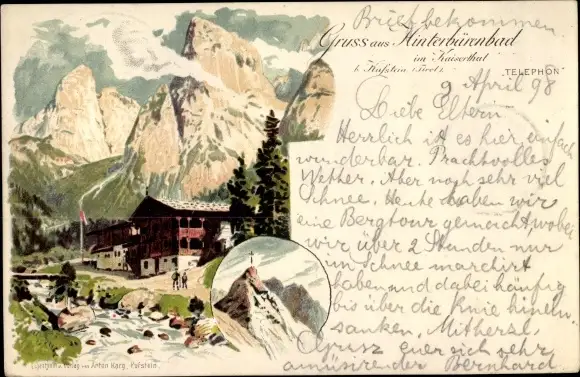 Brief bekommen
Gruss aus Hinterbärenbad
im Kaiserthal
b. Kufstein (Tirol).
"TELEPHON"
2 April 98
Liebe Eltern
Herrlich ist es hier, einfach
wunderbar. Prachtvolles
Wetter. Aber noch sehr viel
Schnee. Heute haben wir
eine Bergtour gemacht, wobei
wir über 2 Stunden nur
im Schnee marcirt
haben und dabei häufig
bis über die Knie hinein
sanken. Mit herzl.
Gruss euer sich sehr
amüsirender Bernhard
Verlag von Anton Karg, Kufstein.